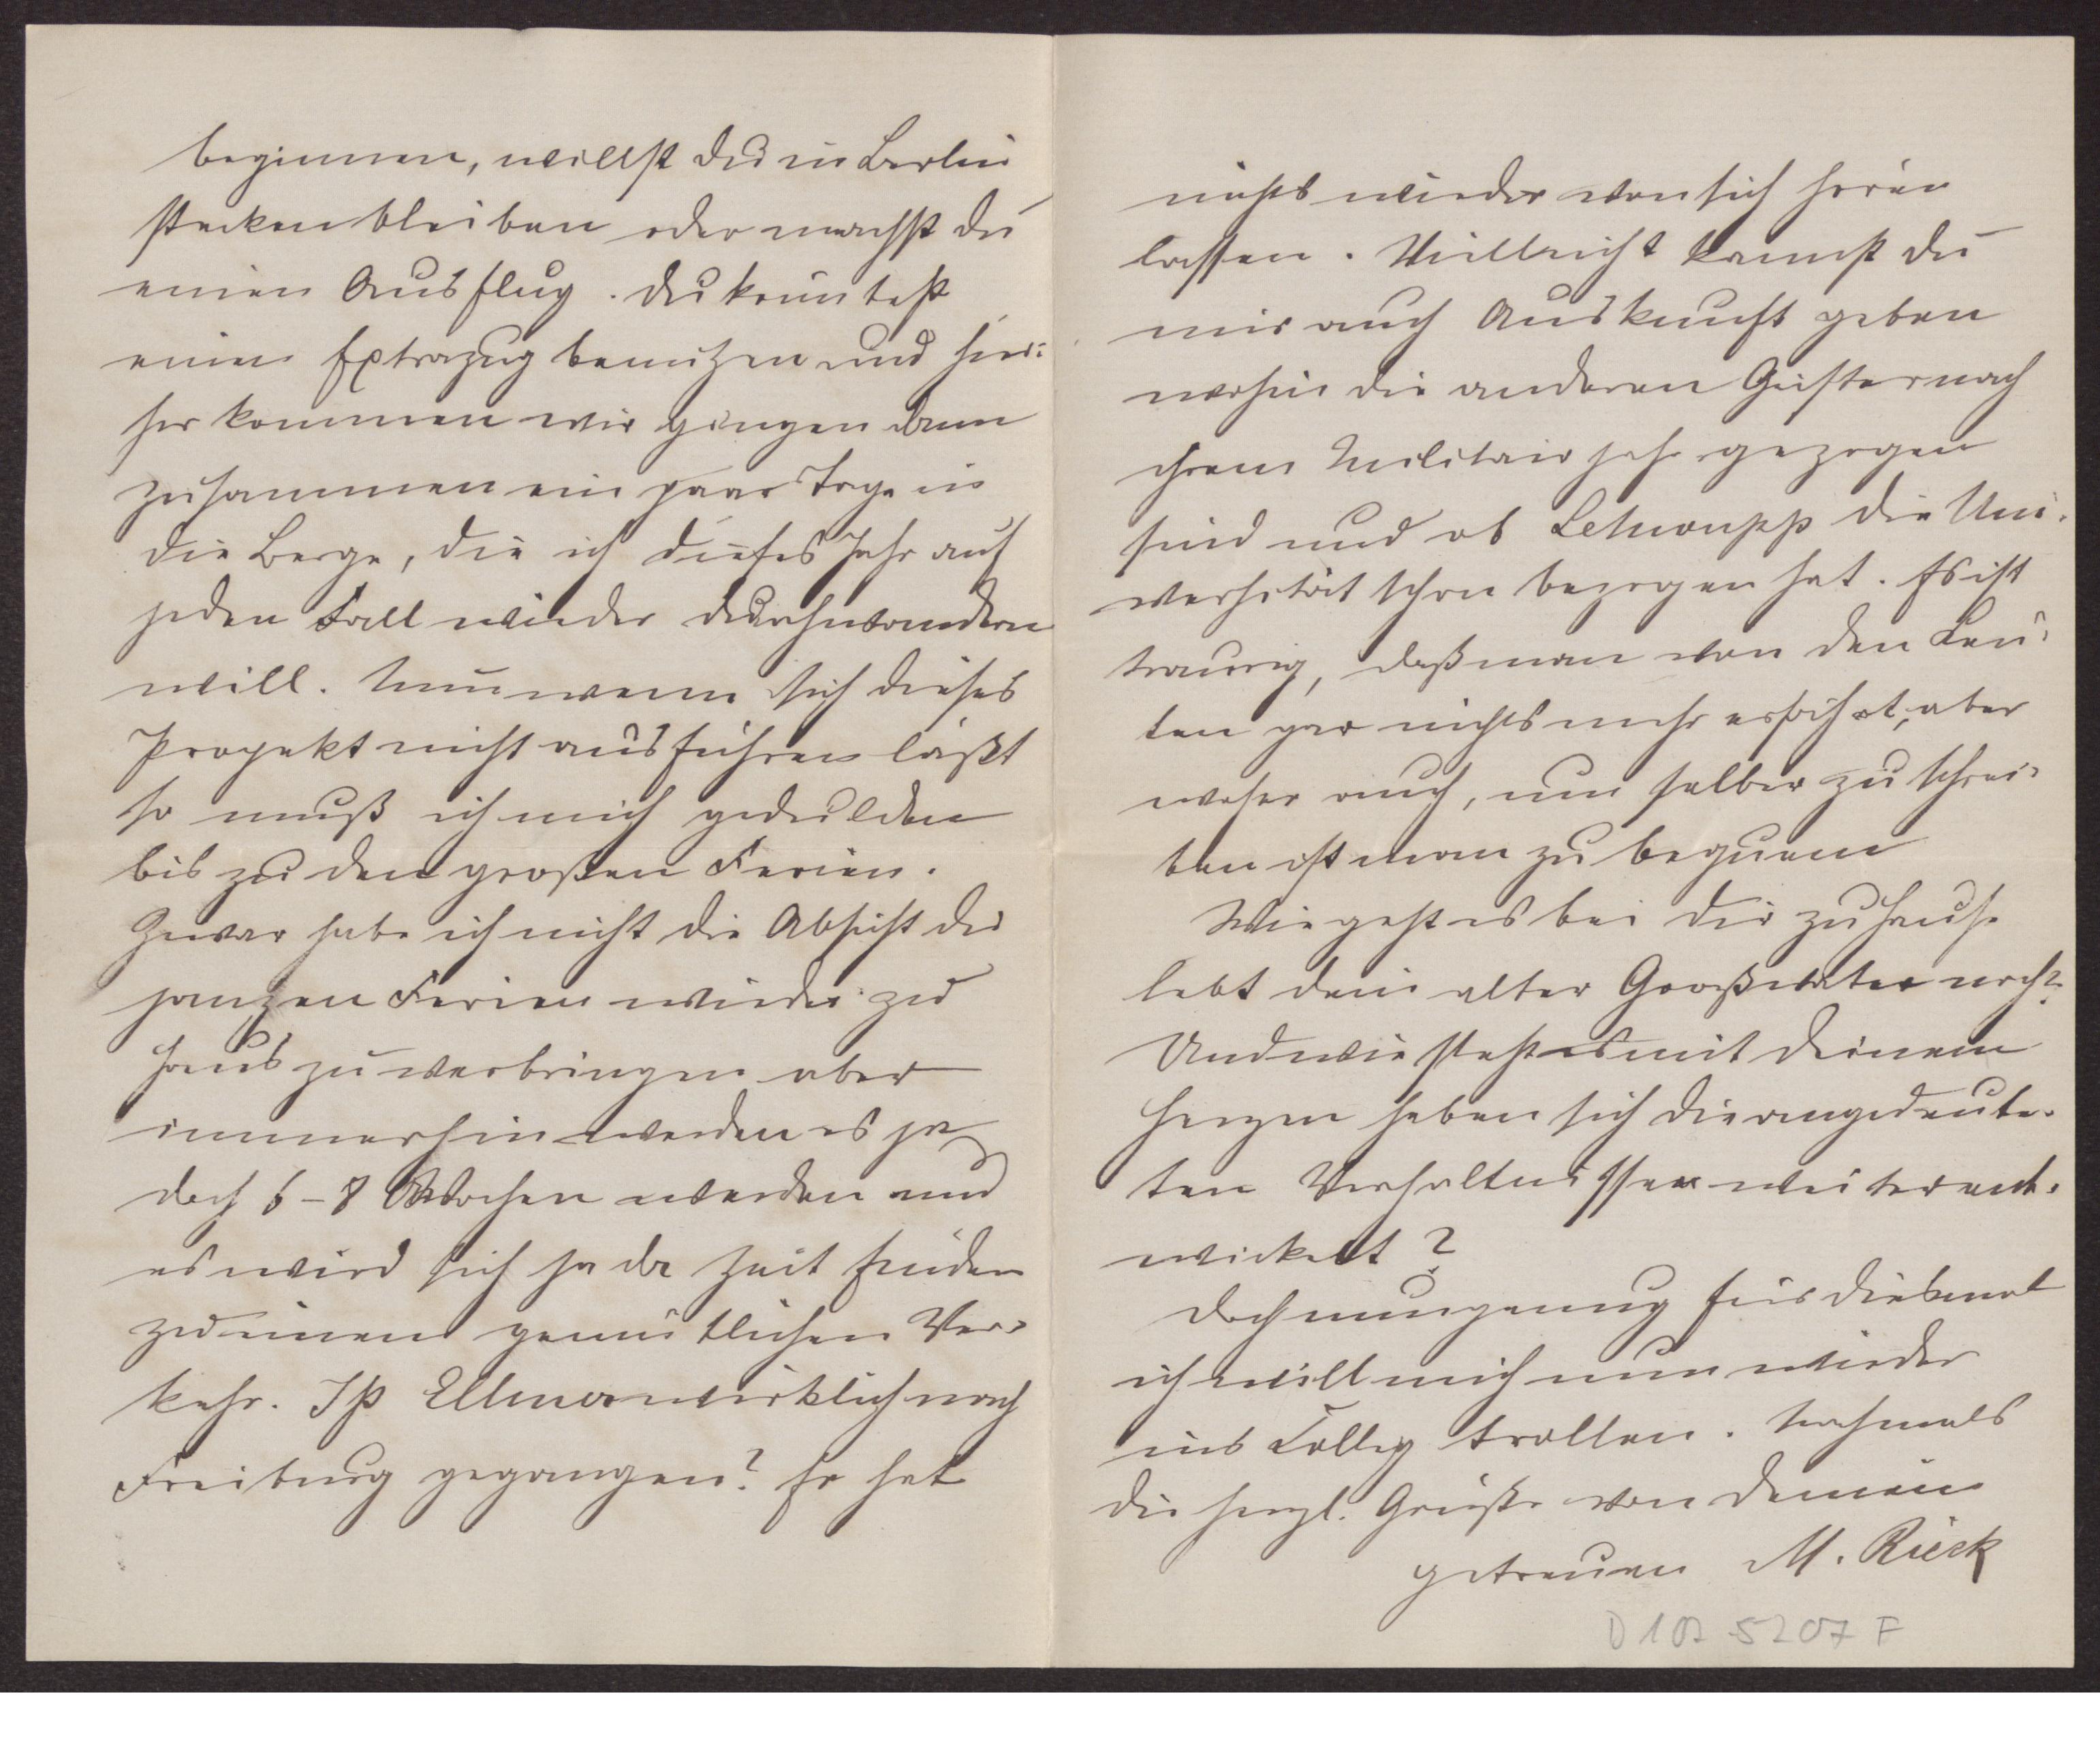 beginnen, willst du in Berlin
stecken bleiben oder machst du
einen Ausflug. Du könntest
einen Extrazug benutzen und hier-
her kommen wir gingen dann
zusammen ein paar Tage in
die Berge, die ich dieses Jahr auf
jeden Fall wieder durchwandern
will. Nun wenn sich dieses
Projekt nicht ausführen läßt
so muß ich mich gedulden
bis zu den großen Ferien.
Zwar habe ich nicht die Absicht die
ganzen Ferien wieder zu
Haus zu verbringen aber
immerhin werden es ja
doch 6-8 Wochen werden und
es wird sich ja da Zeit finden
zu einem gemütlichen Ver-
kehr. Ist Ellmer wirklich nach
Freiburg gegangen? Er hat
nichts wieder von sich hören
lassen. Vielleicht kannst du
mir auch Auskunft geben
wohin die anderen Geister nach
ihrem Militairjahr gezogen
sind und ob die Uni-
versität schon bezogen hat. Es ist
traurig, daß man von den Leu-
ten gar nichts mehr erfährt, aber
woher auch, um selber zu schrei-
ben ist man zu bequem
Wie geht es bei dir zu Hause
lebt dein alter Großvater noch?
Und wie steht es mit deinem
Herzen haben sich die angedeute-
ten Verhältnisse weiter ent-
wickelt?
Doch nun genug für diesmal
ich will mich nun wieder
ins Colleg trollen. Nochmals
die herzl. Grüße von deinem
getreuen M. Rieck
D 107 5207 F